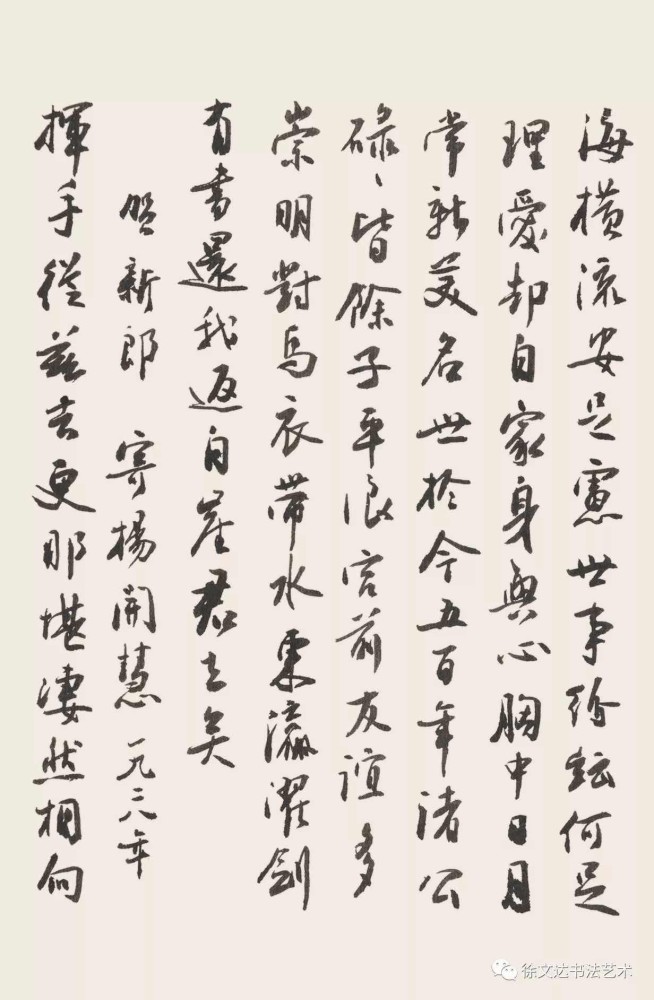 海橫流安足慮世事紛紜何足
理愛却自家身與心胸中日月
常新美名世於今五百年諸公
碌〻皆餘子平浪宮前友誼多
崇明對馬衣帶水東瀛濯劍
有書還我返自崖君去矣
賀新郎 寄楊開慧 一九二八年
揮手從茲去更那堪淒然相向
徐文达书法艺术